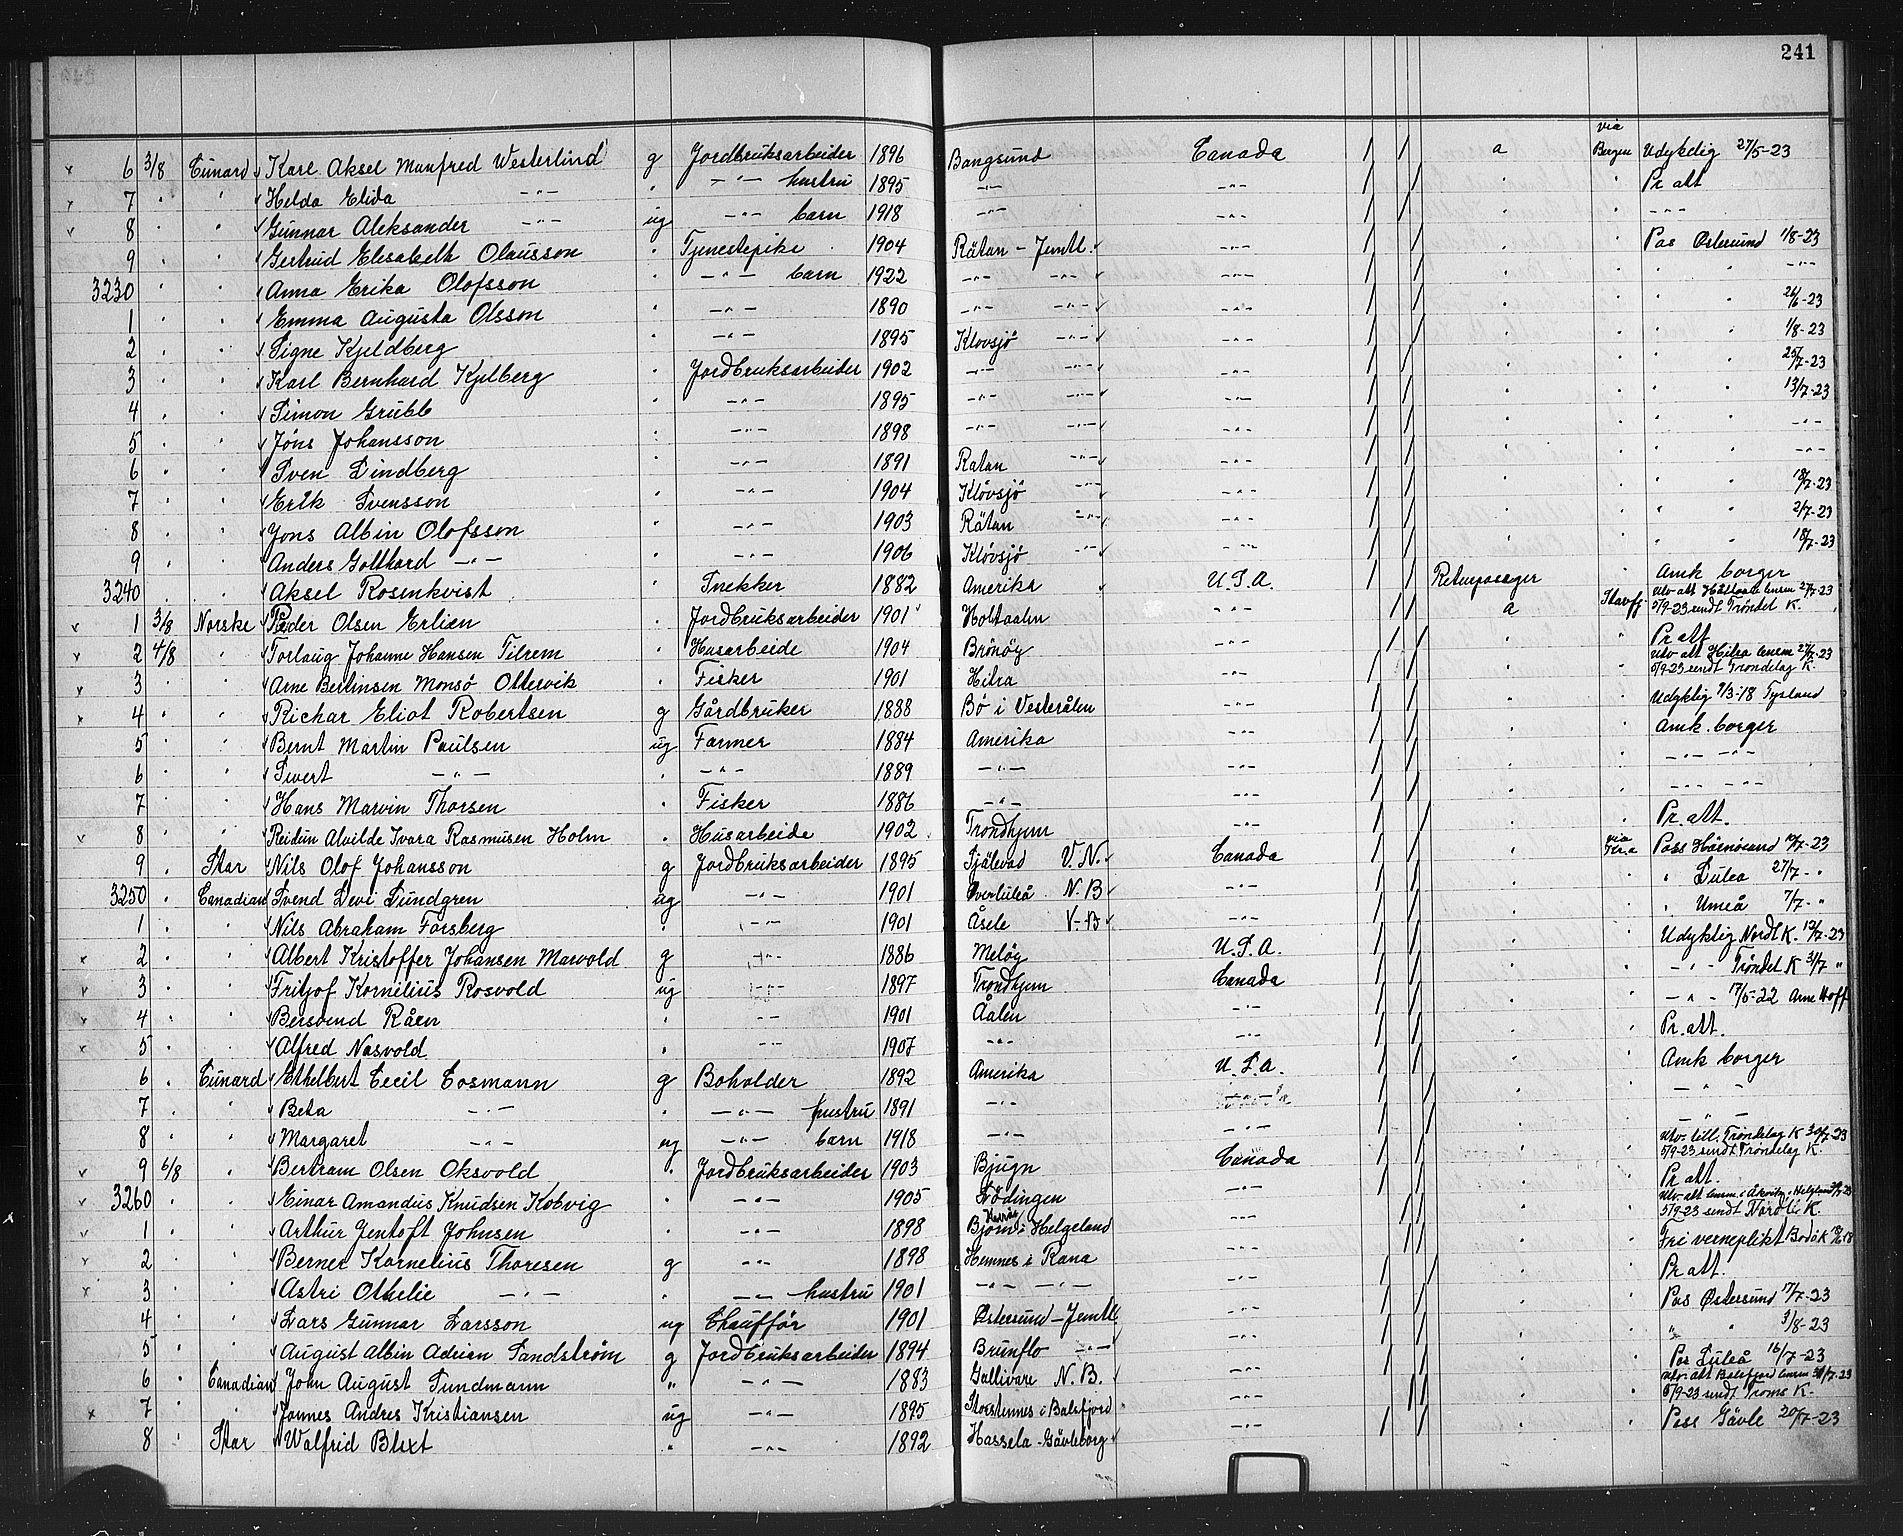 241
via
6 3/8 Cunard Karl Aksel Manfred Westerlind g Jordbruksarbeider 1896 Bangsund Canada a Bergen Udyktig 27/5-23
7 " " Helda Elida -"- " -"- hustru 1895 -"- -"- " " Pr att
8 " " Gunnar Aleksander -"- ug -"- barn 1918 -"- -"- " " -"-
9 " " Gertrud Elisabeth Olausson " Tjenestepike 1904 Rätan - Jemtl. -"- " " Pas Østersund 1/8-23
3230 " " Anna Erika Olofsson " -"- barn 1922 -"- -"- -"- " " " " -"-
1 " " Emma Augusta Olsson " -"- 1890 -"- -"- -"- " " " " 26/6-23
2 " " Signe Kjeldberg " -"- 1895 Klovsjö -"- -"- " " " " 1/8-23
3 " " Karl Bernhard Kjelberg " Jordbruksarbeider 1902 -"- -"- -"- " " " " 25/7-23
4 " " Simon Grubb " -"- 1895 -"- -"- -"- " " " " 13/7-23
5 " " Jöns Johansson " -"- 1898 -"- -"- -"- " " " " -"-
6 " " Sven Lindberg " -"- 1891 Ratan -"- -"- " " " " -"-
7 " " Erik Svensson " -"- 1904 Klövsjö -"- -"- " " " " 18/7-23
8 " " Jons Albin Olofsson " -"- 1903 Rätan -"- -"- " " " " 2/7-23
9 " " Anders Gotthard -"- " -"- 1906 Klövsjö -"- -"- " " " " 18/7-23
3240 " " Aksel Rosenkvist " Snekker 1882 Amerika U.S.A. Returpassager " Amk borger
1 3/8 Norske Peder Olsen Erlien " Jordbruksarbeider 1901 Holtaalen -"- a Utv att Holtaalen lensm 27/7-23
5/9-23 sendt Tröndel K.
2 4/8 " Torlaug Johanne Hansen Tilrem " Husarbeide 1904 Brönöy -"- " " Pr att
3 " " Arne Bertinsen Monsö Ottersvik " Fisker 1901 Hitra -"- " " Utv att Hitra lensm 27/7-23
5/9-23 sendt Trondelag K.
4 " " Richar Eliot Robertsen g Gårdbruker 1888 Bö i Vesterålen -"- " " Udyktig 9/3-18 Tysland
5 " " Bernt Martin Paulsen ug Farmer 1884 Amerika -"- " " Amk. borger
6 " " Sivert -"- " -"- 1889 -"- -"- " " -"- -"-
7 " " Hans Marvin Thorsen " Fisker 1886 -"- -"- " " -"- -"-
8 " " Reidun Alvilde Ivara Rasmusen Holm " Husarbeide 1902 Trondhjem -"- " " Pr. att.
9 " Star Nils Olof Johansson g Jordbruksarbeider 1895 Själevad V.N. Canada " via Kr.a Pass Härnösand 10/7-23
3250 " Canadian Svend Levi Lundgren ug -"- 1901 Överluleå N.B -"- " " " Lulea 27/7-"
1 " " Nils Abraham Forsberg " -"- 1901 Åsele V-B -"- " " " Umeå 7/7-"
2 " " Albert Kristoffer Johansen Marvold g -"- 1886 Meløy U.S.A. " " Udyktig Nordl K. 12/7-23
3 " " Fritjof Kornilius Rosvold ug -"- 1897 Trondhjem Canada " " -"- Tröndel K 3/7 "
4 " " Bersvend Råen " -"- 1901 Åalen -"- " " -"- 17/5-22 Arne Hoff
5 " " Alfred Nasvold " -"- 1907 -"- -"- " " Pr. att.
6 " Cunard Ethelbert Cecil Cosmann g Boholder 1892 Amerika U.S.A. " " Amk borger
7 " " Beta -"- " -"- hustru 1891 -"- -"- " " -"-
8 " " Margaret -"- ug -"- barn 1918 -"- -"- " " -"-
9 6/8 " Bertram Olsen Oksvold " Jordbruksarbeider 1903 Bjugn Canada " " Utv. till. Tröndelag K 30/7-23
5/9-23 sendt Tröndelag K.
3260 " " Einar Amandus Knudsen Kobvig " -"- 1905 Lödingen -"- " " Pr att.
1 " " Arthur Jentoft Johnsen " -"- 1898 Bjorn i Helgeland -"- " "
5/9-23 sendt Nordl K.
2 " " Berner Kornelius Thoresen g -"- 1898 Hemnes i Rana -"- " " Fri verneplikt Bodö K
3 " " Astri Othelie -"- " -"- hustru 1901 -"- -"- -"- " " Pr att.
4 " " Lars Gunnar Larsson ug Chauffør 1901 Østersund - Jemtl. -"- " " Pas Østersund 17/7-23
5 " " August Albin Adrian Sandstrøm g Jordbruksarbeider 1894 Brunflo -"- -"- " " " " 3/8-23
6 " Canadian John August Sundmann " -"- 1883 Gällivare N.B. -"- " " Pas Luleå 16/7-23
7 " " Jonnes Andres Kristiansen ug -"- 1895 Storstennes i Balsfjord -"- " " Utv. att Balsfjord lensm
5/9-23 sendt Troms K.
8 " Star Walfrid Blixt " -"- 1892 Hassela - Gävleborg -"- " " Pass Gävle 20/7-23